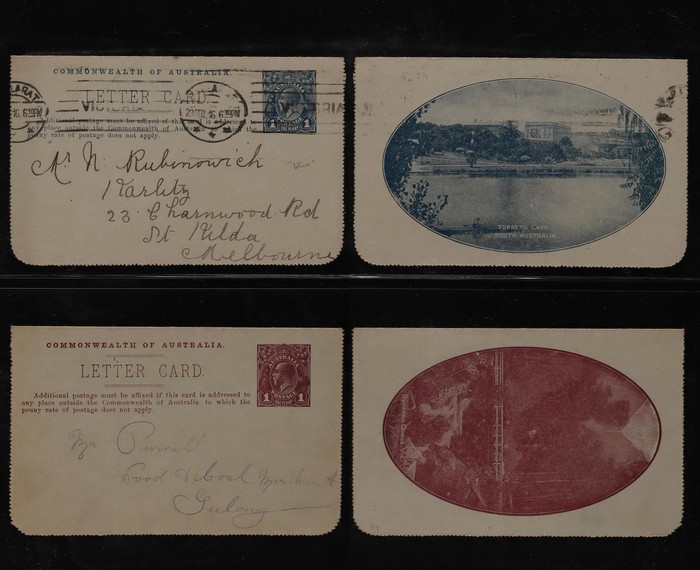 COMMONWEALTH OF AUSTRALIA.
LETTER CARD.
Additional postage must be affixed if this card is addressed to
any place outside the Commonwealth of Australia to which the
penny rate of postage does not apply.
AUSTRALIA
POSTAGE
1 ONE PENNY 1
Mr N. Rubinowich
"Karlitz"
23 Charnwood Rd
St Kilda
Melbourne
TORRENS LAKE.
SOUTH AUSTRALIA.
COMMONWEALTH OF AUSTRALIA.
LETTER CARD.
Additional postage must be affixed if this card is addressed to
any place outside the Commonwealth of Australia to which the
penny rate of postage does not apply.
AUSTRALIA
POSTAGE
1 ONE PENNY 1
Mr Purnell
Wood & Coal Merchant
Geelong